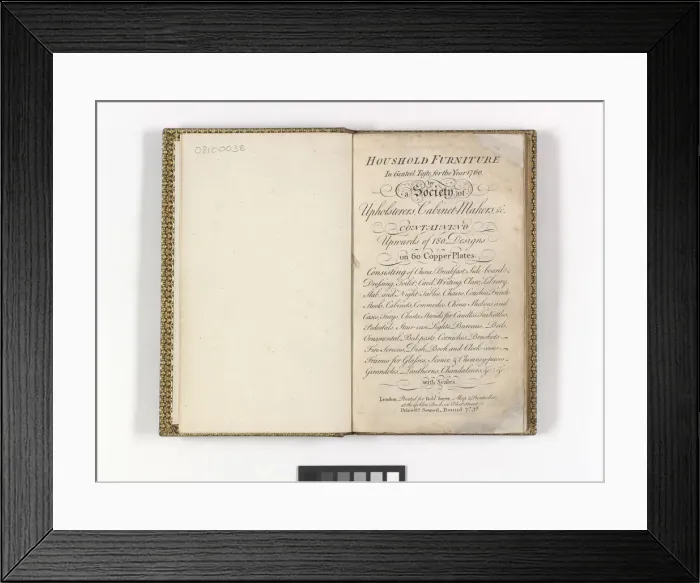 0810-0038
HOUSHOLD FURNITURE
In Genteel Taste, for the Year 1760.
By
a Society of
Upholsterers, Cabinet-Makers, &c.
CONTAINING
Upwards of 180 Designs
on 60 Copper Plates.
Consisting of China, Breakfast, Side-boards,
Dressing, Toilet, Card, Writing, Claw, Library,
Slab, and Night Tables, Chairs, Couches, French
Stools, Cabinets, Commodes, China Shelves and
Cases, Trays, Chests, Stands for Candles, Tea Kettles,
Pedestals, Stair-case Lights, Bureaus, Beds,
Ornamental Bed-posts, Cornishes, Brackets
Fire-Screens, Desk, Book and Clock-cases
Frames for Glasses, Sconce & Chimney-pieces
Girandoles, Lanthorns, Chandalears, &c. &c.
with Scales.
London, Printed for Robt. Sayer, Map & Printseller,
at the Golden Buck in Fleet Street.
Price Sewed, Bound